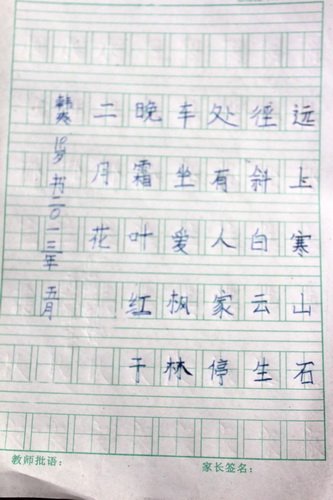 远上寒山石
径斜白云生
处有人家停
车坐爱枫林
晚霜叶红于
二月花
韩 10岁 书二0一三年 五月
教师批语： 家长签名：